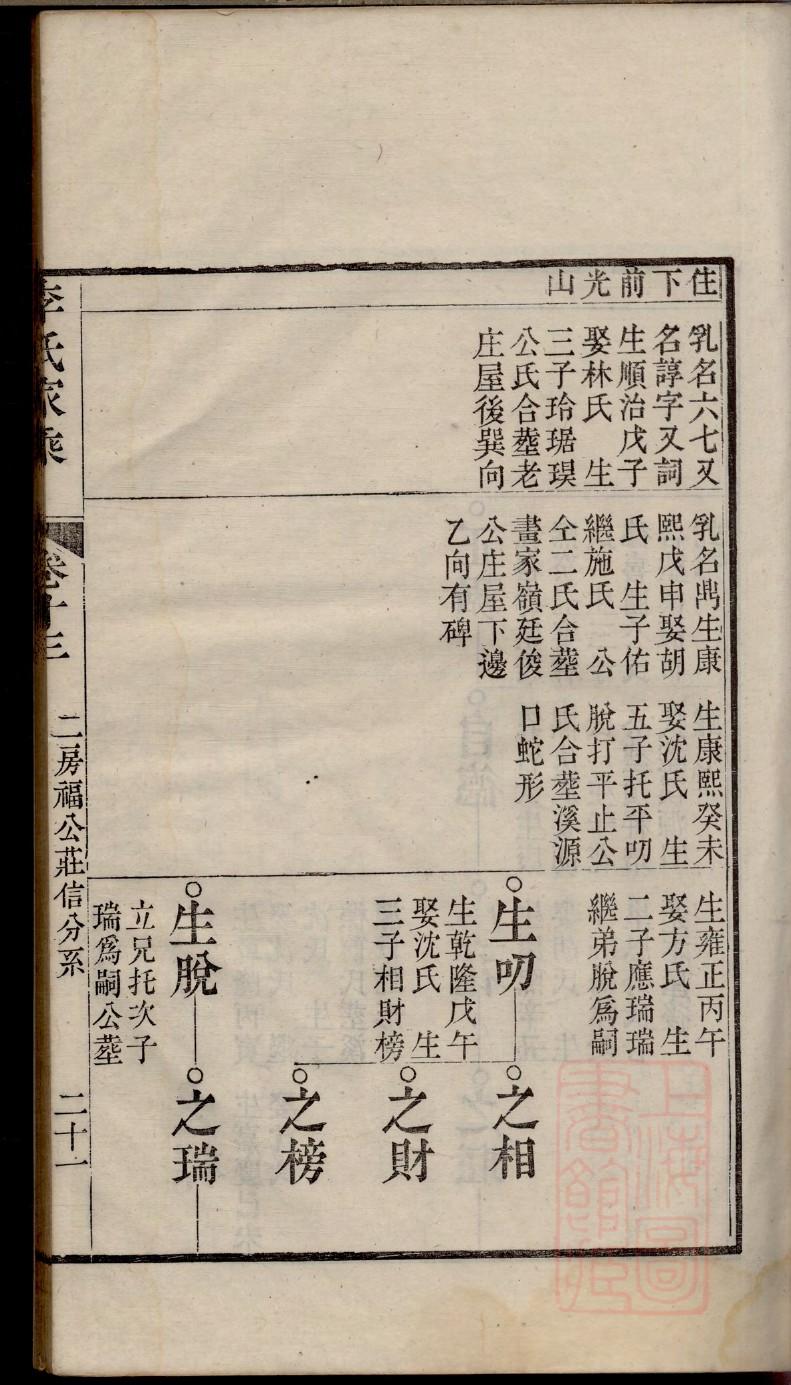 住下前光山
乳名六七又
名諄字又詞
生順治戊子
娶林氏　生
三子玲琚琪
公氏合塟老
庄屋後巽向
乳名鳭生康
熙戊申娶胡
氏　生子佑
繼施氏　公
仝二氏合塟
畫家嶺廷俊
公庄屋下邊
乙向有碑
生康熙癸未
娶沈氏　生
五子托平叨
脫打平止公
氏合塟溪源
口蛇形
生雍正丙午
娶方氏　生
二子應瑞瑞
繼弟脫爲嗣
生叨
生乾隆戊午
娶沈氏　生
三子相財榜
生脫
立兄托次子
瑞爲嗣公塟
之相
之財
之榜
之瑞
李氏家乘
卷十三
二房福公莊信分系
二十一
上海圖書館藏